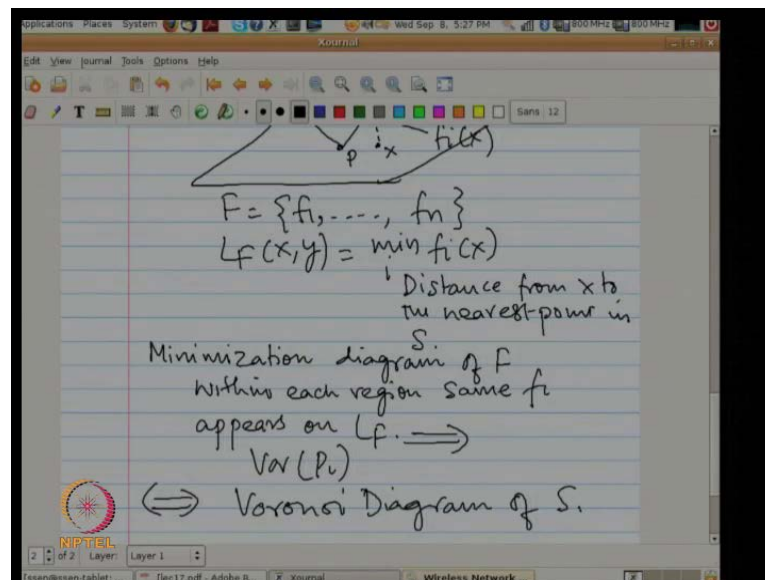 Applications Places System Wed Sep 8, 5:27 PM 800 MHz 800 MHz
Xournal
Edit View Journal Tools Options Help
T Sans 12
P x fi(x)
F = {f1, ----, fn}
LF (x,y) = min fi(x)
i Distance from x to
the nearest point in
S
Minimization diagram of F
within each region same fi
appears on LF. ⟹
Vor (Pi)
⟺ Voronoi Diagram of S.
NPTEL
2 of 2 Layer: Layer 1
[ssen@ssen-tablet: [lec17.pdf - Adobe R... Xournal Wireless Network